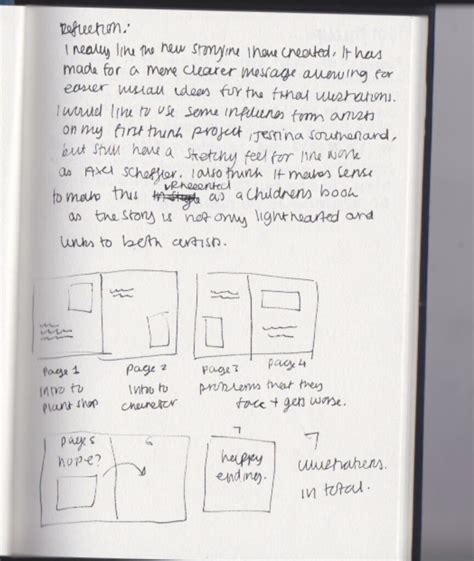 Reflection:
I really like the new storyline I have created. It has
made for a more clearer message allowing for
easier visual ideas for the final illustrations.
I would like to use some influences form artists
on my first think project, Jessina Southerland,
but still have a sketchy feel for line work
as Axel Scheffler. I also think it makes sense
to make this presented as a childrens book
as the story is not only lighthearted and
links to both artists.
Page 1 Page 2 Page 3 Page 4
Intro to Intro to problems that they
plant shop character face + gets worse.
page 5 6 7 7
hope? happy illustrations
ending. in total.